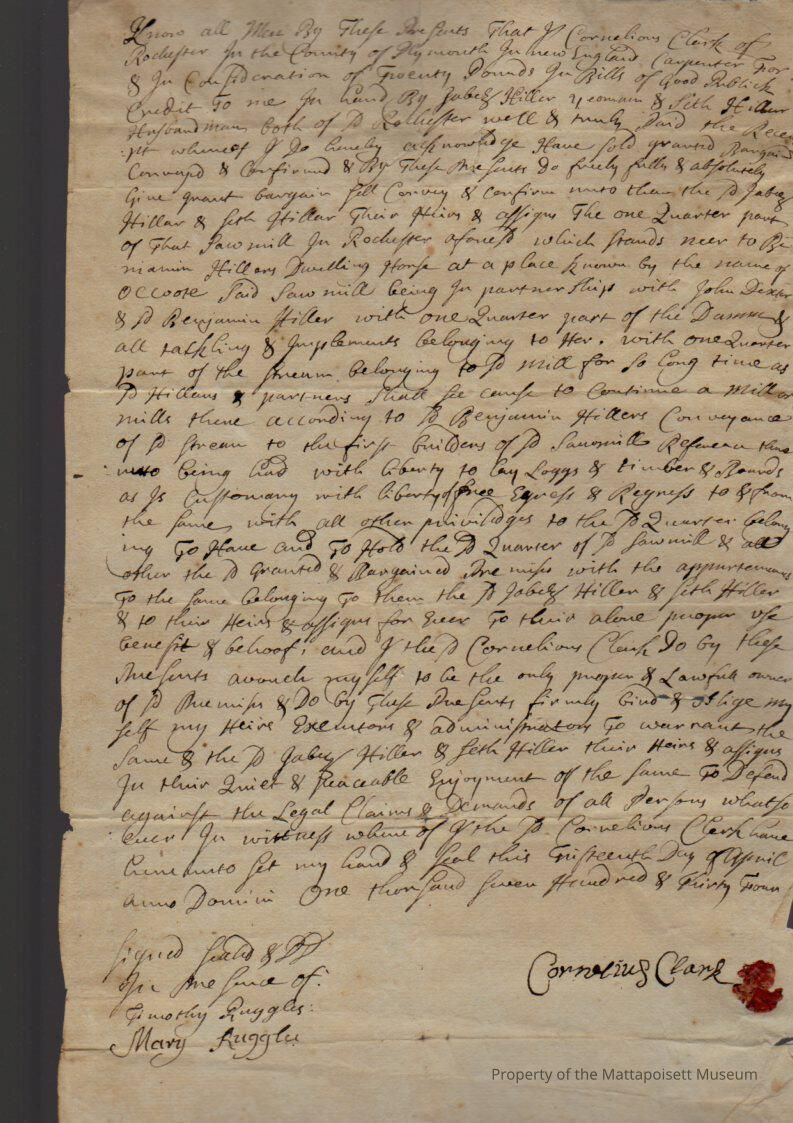 Know all Men By These Presents That I Cornelious Clerk of
Rochester In the County of Plymouth In new England Carpenter For
& In Consideration of Twenty Pounds In Bills of Good Publick
Credit To me In hand By Jabez Hiller yeoman & Seth Hiller
Husbandman both of sd Rochester well & truly Paid the Recei
:pt whereof I Do hereby acknowledge Have sold granted Bargaind
Conveyd & Confirmd & By These Presents Do freely fully & absolutely
Give grant bargain sell Convey & confirm unto them the sd Jabez
Hillar & Seth Hillar Their Heirs & assigns The one Quarter part
of That Sawmill In Rochester aforesd which stands neer to Be
niamin Hillers Dwelling House at a place known by the name of
Occoote Said Sawmill being In partnership with John Dexter
& sd Benjamin Hiller with one Quarter part of the Damm &
all tackling & Implements belonging to Her. with one Quarter
part of the stream belonging to sd mill for so Long time as
sd Hillars & partners shall see cause to Continue a mill or
mills there according to sd Benjamin Hillers Conveyance
of sd stream to the first builders of sd Sawmill Referenc there
unto being had with liberty to lay Loggs & timber & Boards
as Is Customary with liberty of free Egress & Regress to & from
the same with all other priviledges to the sd Quarter belong
ing To Have and To Hold the sd Quarter of sd Sawmill & all
other the sd Granted & Bargained Premiss with the appurtenances
To the same belonging To them the sd Jabez Hiller & Seth Hiller
& to their Heirs & assigns for Ever To their alone proper use
benefit & behoof; and I the sd Cornelious Clerk Do by these
Presents avouch myself to be the only proper & Lawfull owner
of sd Premiss & Do by These Presents firmly bind & oblige my
self my Heirs Executors & administrators To warrant the
same & the sd Jabez Hiller & Seth Hiller their Heirs & assigns
In their Quiet & Peaceable Enjoyment of the same To Defend
against the Legal Claims & Demands of all Persons whatso
ever In witness whereof I the sd Cornelious Clerk have
hereunto set my hand & seal this Day of April
anno Domini One thousand seven Hundred & Thirty Four
signed seald & DD
In Presence of:
Timothy Ruggles:
Mary Ruggles
Cornelius Clark
Property of the Mattapoisett Museum